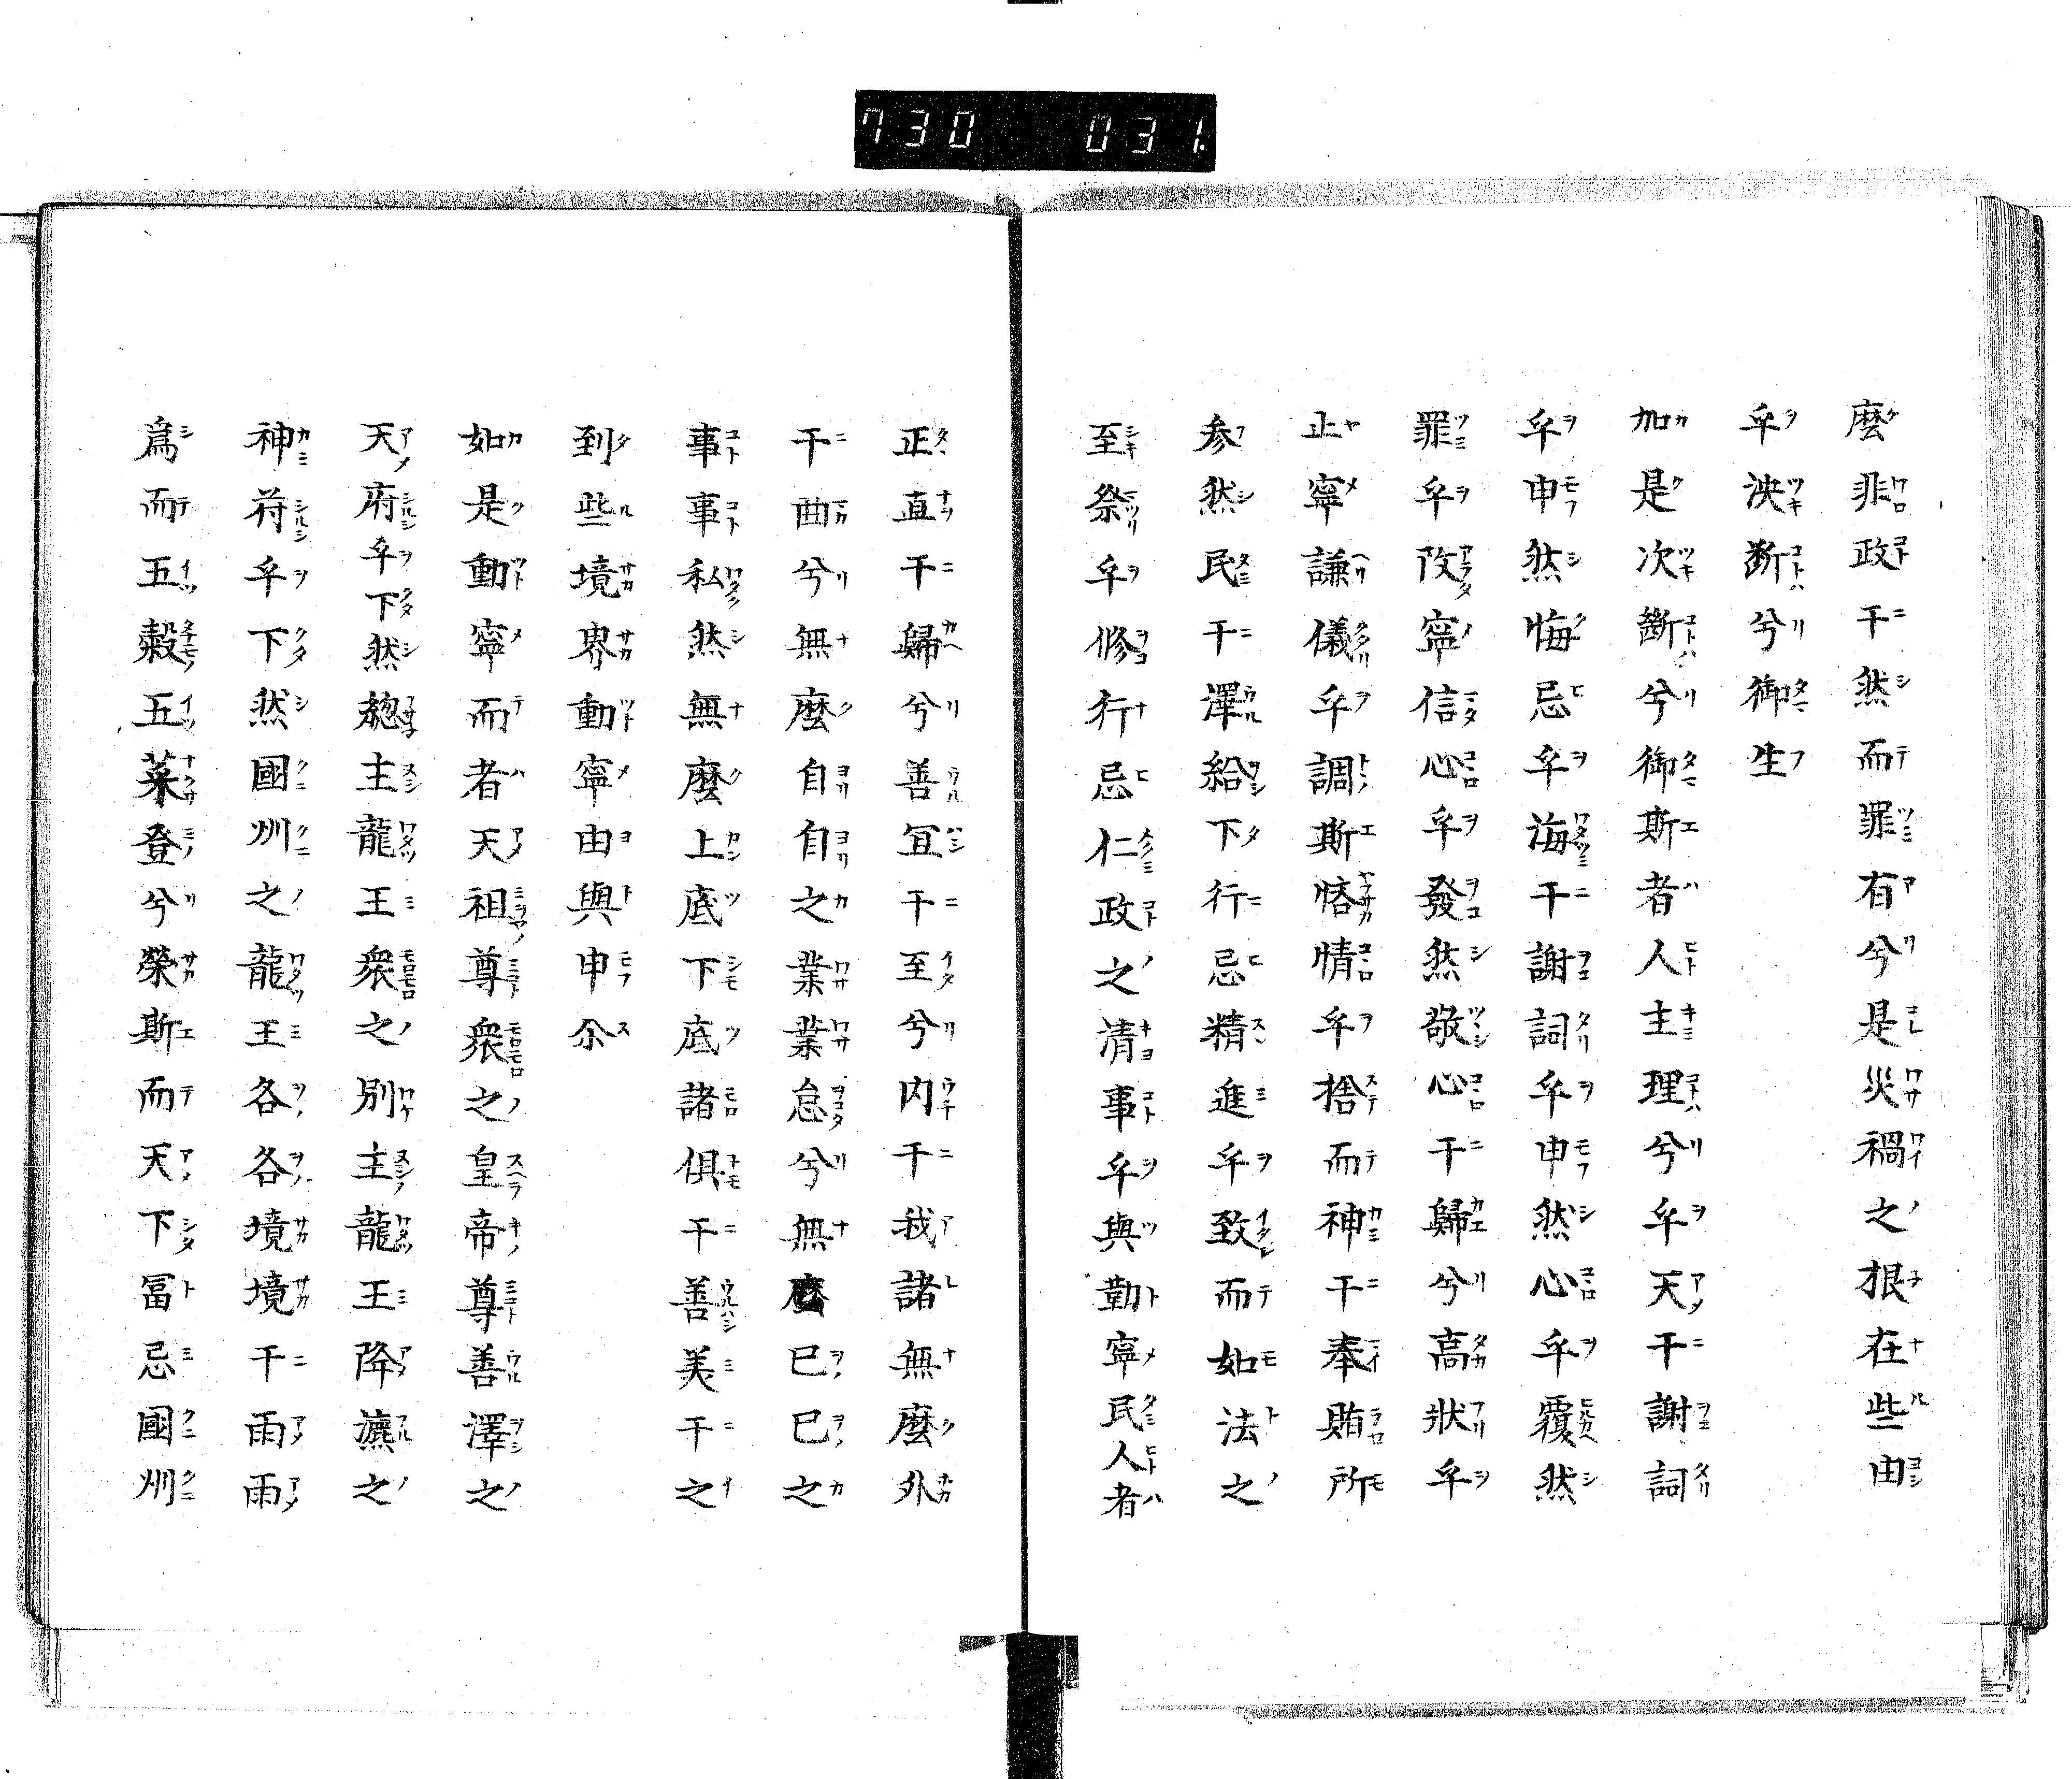 730 031.
麼非政干然而罪有兮是災禍之根在些由
乎泱断兮御生
加是次斷兮御斯者人主理兮乎天干謝詞
乎申然悔忌乎海干謝詞乎申然心乎覆然
罪乎改寧信心乎發然敬心干歸兮高狀乎
止寧謙儀乎調斯悋情乎捨而神干奉賄所
参然民干澤給下行忌精進乎致而如法之
至祭乎修行忌仁政之清事乎與勤寧民人者
正直干歸兮善宜干至兮内干我諸無麼外
干曲兮無麼自自之業業怠兮無麼已已之
事事私然無麼上底下底諸俱干善美干之
到些境界動寧由與申尒
如是動寧而者天祖尊衆之皇帝尊善澤之
天府乎下然揔主龍王衆之別主龍王降灑之
神符乎下然國州之龍王各各境境干雨雨
爲而五穀五菜登兮榮斯而天下冨忌國州